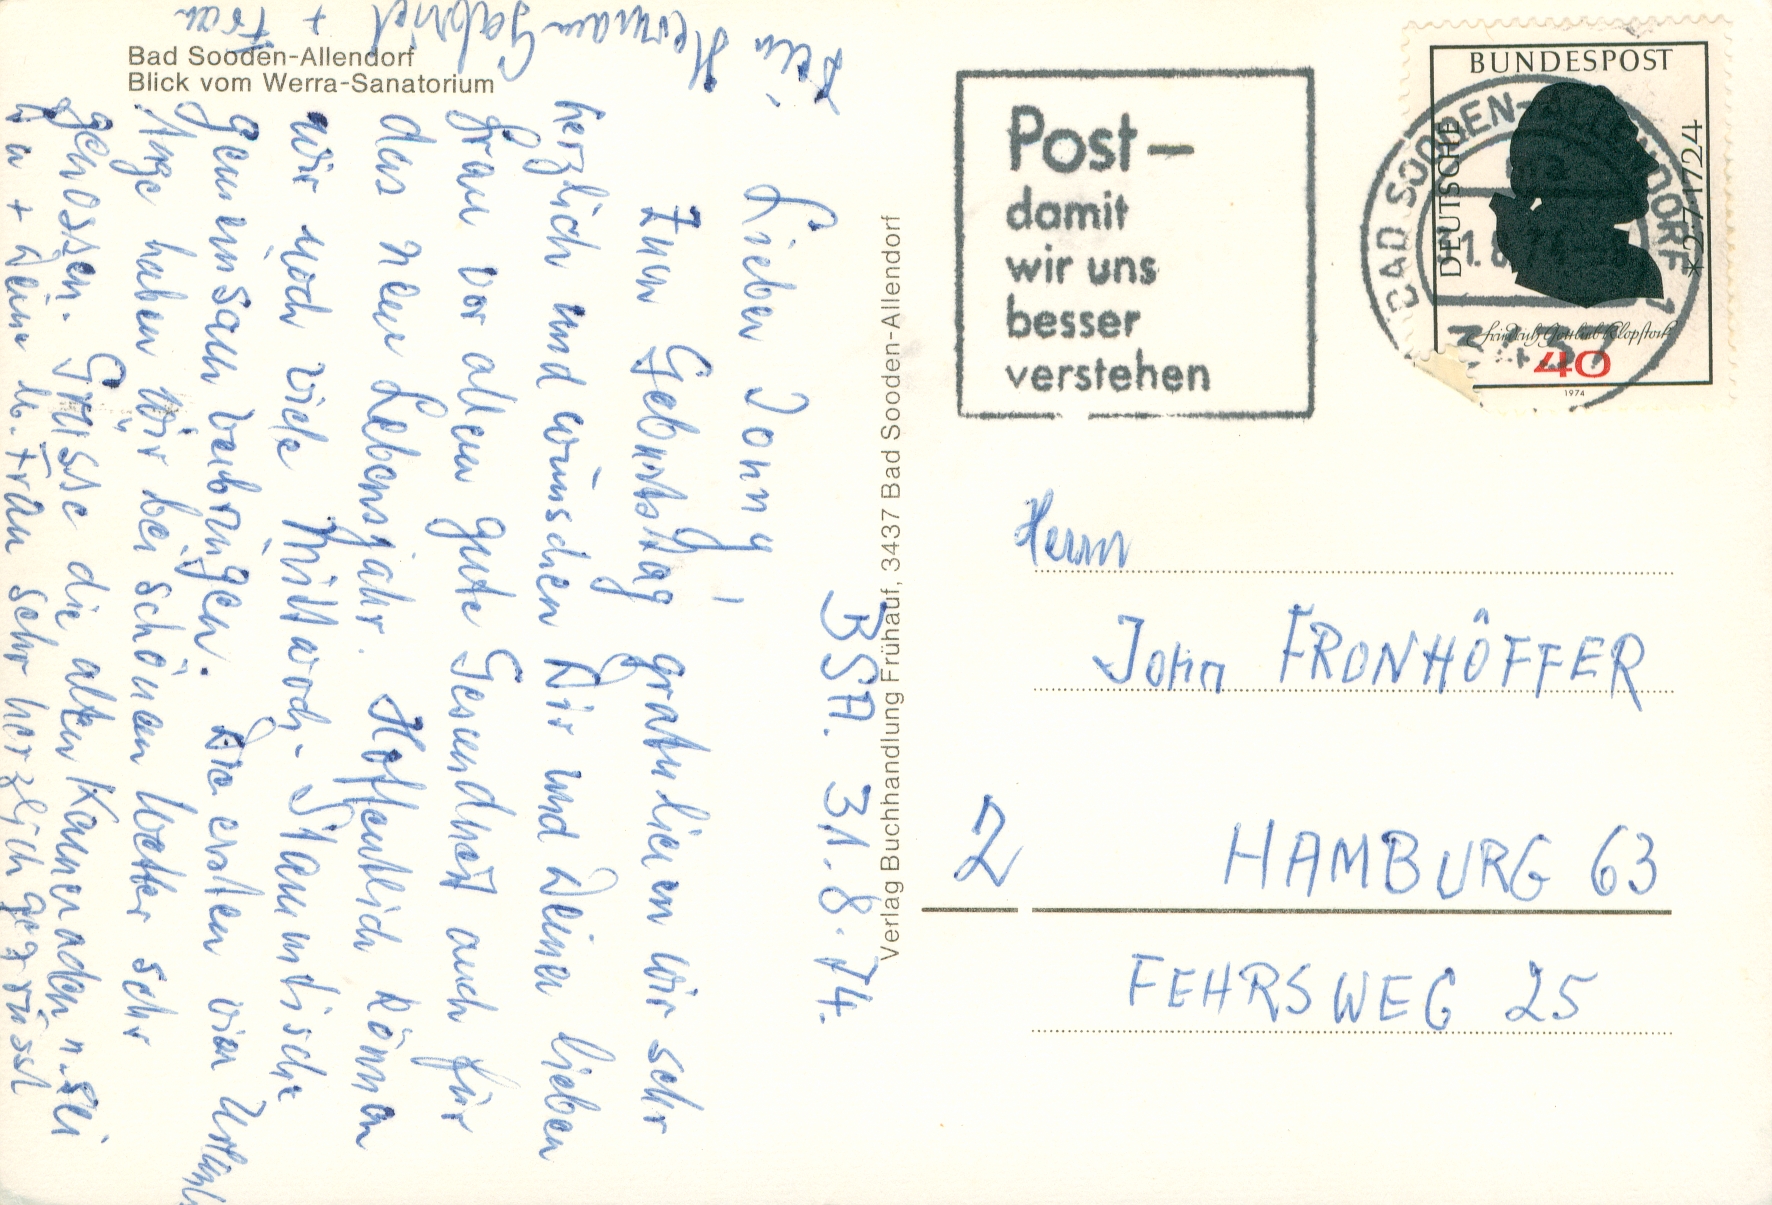 Bad Sooden-Allendorf
Blick vom Werra-Sanatorium
BSA. 31.8.74.
Lieber Jonny,
Zum Geburtstag gratulieren wir sehr
herzlich und wünschen Dir und Deiner lieben
Frau vor allem gute Gesundheit auch für
das neue Lebensjahr. Hoffentlich können
wir noch viele Mittwoch-Stammtische
gemeinsam verbringen. Die ersten vier Urlaubs
Tage haben wir bei schönem Wetter sehr
genossen. Grüsse die alten Kameraden u. sei
Du + Deine lb. Frau sehr herzlich gegrüsst
Dein Herman Gabriel + Frau
Verlag Buchhandlung Frühauf, 3437 Bad Sooden-Allendorf
Post-
damit
wir uns
besser
verstehen
DEUTSCHE BUNDESPOST
*2·7·1724
Friedrich Gottlieb Klopstock
40
1974
BAD SOODEN-ALLENDORF 1
3437
Herrn
John FRONHÖFFER
2 HAMBURG 63
FEHRSWEG 25